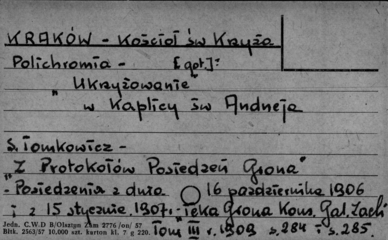 KRAKÓW - Kościół św Kryża
Polichromia - [got.]:
"Ukryżowanie"
w Kaplicy św Andrzeja
S. Tomkowicz -
"Z Protokołów Posiedzeń Grona"
- Posiedzenia z dnia 16 października 1906
i z 15 stycznia 1907. "Teka Grona Kons. Gal. Zach."
Tom III r. 1909 s. 284 i s. 285.
Jedn. C.W.D B/Olsztyn Zam 2776 /on/ 57
Bltk. 2563/57 10.000 szt. karton kl. 7 g 220.